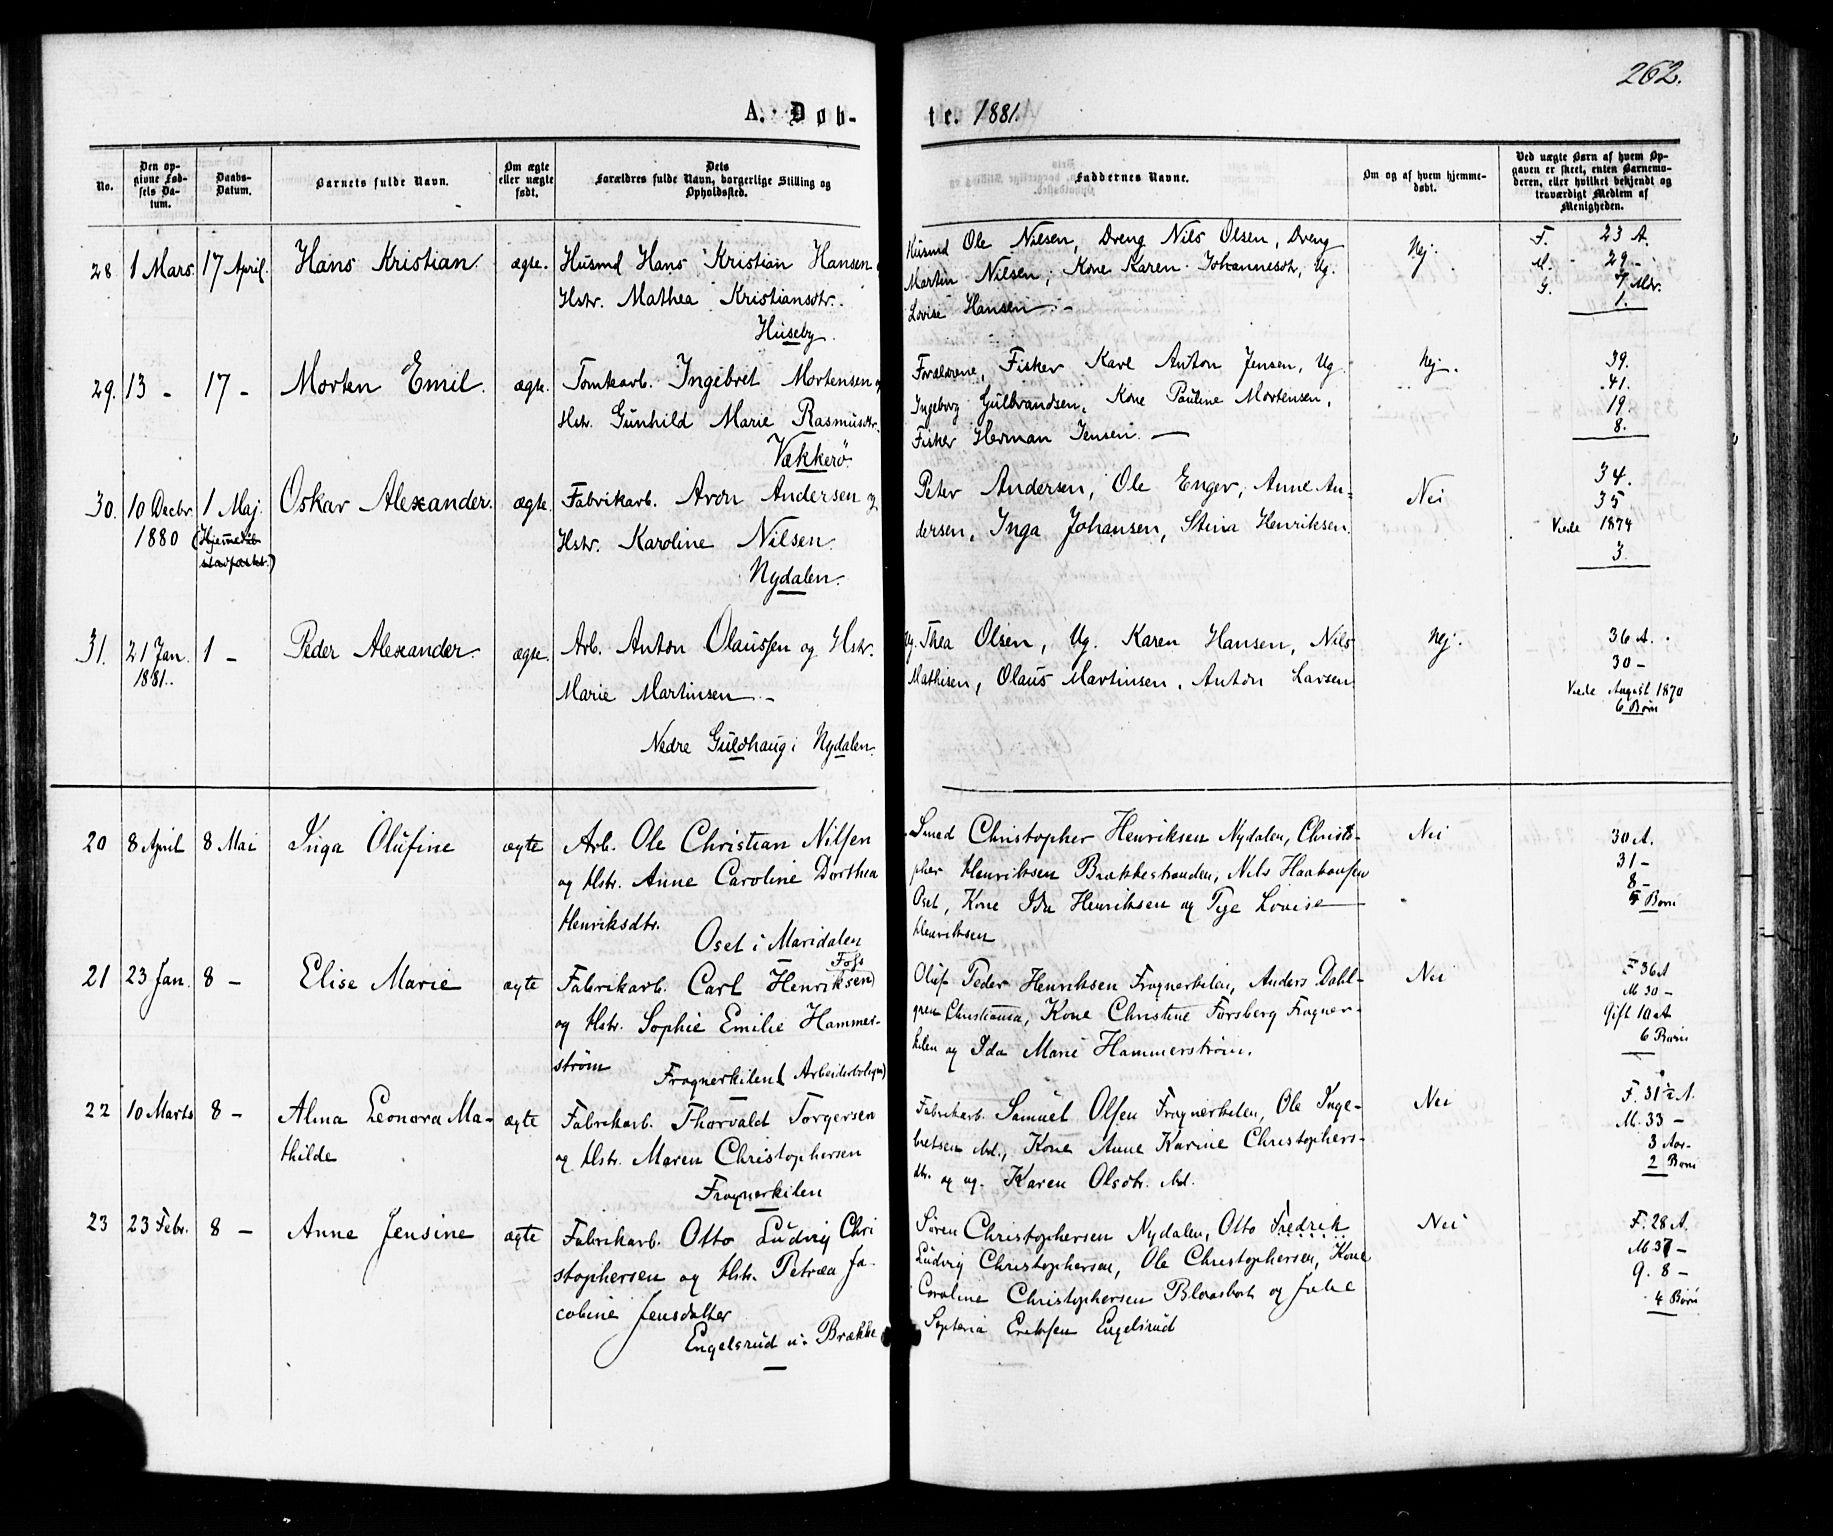 262.
A. Døb-
te. 1881.
No.
Den op-
givne Fød-
sels Da-
tum.
Daabs-
Datum.
Barnets fulde Navn.
Om ægte
eller uægte
født.
Dets
Forældres fulde Navn, borgerlige Stilling og
Opholdssted.
Faddernes Navne.
Om og af hvem hjemme-
døbt.
Ved uægte Børn af hvem Op-
gaven er skeet, enten Barnemo-
deren, eller hvilket bekjendt og
troværdigt Medlem af
Menigheden.
28. 1 Mars. 17 April. Hans Kristian. ægte.
Husmd Hans Kristian Hansen
Hstr. Mathea Kristiansdtr.
Huseby.
Husmd Ole Nilsen, Dreng Nils Olsen, Dreng
Martin Nilsen, Kone Karen Johannesdt, Ug.
Lovise Hansen. -
Nej.
F. 23 A.
M. 29 -
G. 7 Mdr.
1.
29. 13 - 17 - Morten Emil. ægte.
Tomtearb. Ingebret Mortensen og
Hstr. Gunhild Marie Rasmusdtr.
Vækkerø.
Forældrene, Fisker Karl Anton Jensen, Ug.
Ingeborg Gulbrandsen, Kone Pauline Mortensen,
Fisker Herman Jensen. —
Nej.
39.
41.
19.
8.
30. 10 Decbr. 1880 1 Maj. (Hjemmedåb
stadfæstet.)
Oskar Alexander. ægte.
Fabrikarb. Aron Andersen og
Hstr. Karoline Nilsen.
Nydalen.
Peter Andersen, Ole Enger, Anne An=
dersen, Inga Johansen, Stina Henriksen.
Nei
34.
35
Viede 1874
3.
31. 21 Jan. 1881. 1 - Peder Alexander. ægte.
Arb. Anton Olaussen og Hstr.
Marie Martinsen. -
Nedre Guldhaug i Nydalen.
Ug. Thea Olsen, Ug. Karen Hansen, Nils
Mathisen, Olaus Martinsen, Anton Larsen
Nej.
36 A.
30 -
Viede August 1870
6 Børn
20 8 April 8 Mai Inga Olufine ægte
Arb. Ole Christian Nilsen
og Hstr. Anne Caroline Dorthea
Henriksdtr.
Oset i Maridalen
Smed Christopher Henriksen Nydalen, Christo-
pher Henriksen Brækkestranden, Nils Haakonsen
Oset, Kone Ida Henriksen og Pige Lovise
Henriksen
Nei
30 A.
31 -
8 -
Børn
21 23 Jan. 8 - Elise Marie ægte
Fabrikarb. Carl Henriksen
og Hstr. Sophie Emilie Hammer-
strøm
Frognerkilen (Arbeiderboligen)
Oluf Peder Henriksen Frognerkilen, Anders Dahl-
gren Christiania, Kone Christine Forsberg Frogner-
kilen og Ida Marie Hammerstrøm.
Nei
F 36 A
M 30 -
Gift 10 A
6 Børn
22 10 Marts 8 - Alma Leonora Ma-
thilde
ægte
Fabrikarb. Thorvald Torgersen
og Hstr. Maren Christophersen
Frognerkilen
Fabrikarb. Samuel Olsen Frognerkilen, Ole Inge-
bretsen ibd., Kone Anne Karine Christophers-
dtr. og ug. Karen Olsdtr. ibd.
Nei
F. 31 1/2 A.
M. 33 -
3 Aar
2 Børn
23 23 Febr. 8 - Anne Jensine ægte
Fabrikarb. Otto Ludvig Chri
stophersen og Hstr. Petræa Ja-
cobine Jensdatter
Engelsrud v: Brække
Søren Christophersen Nydalen, Otto Fredrik
Ludvig Christophersen, Ole Christophersen, Kone
Caroline Christophersen og
Eriksen Engelsrud
Nei
F. 28 A.
M 37 -
G. 8 -
4 Børn